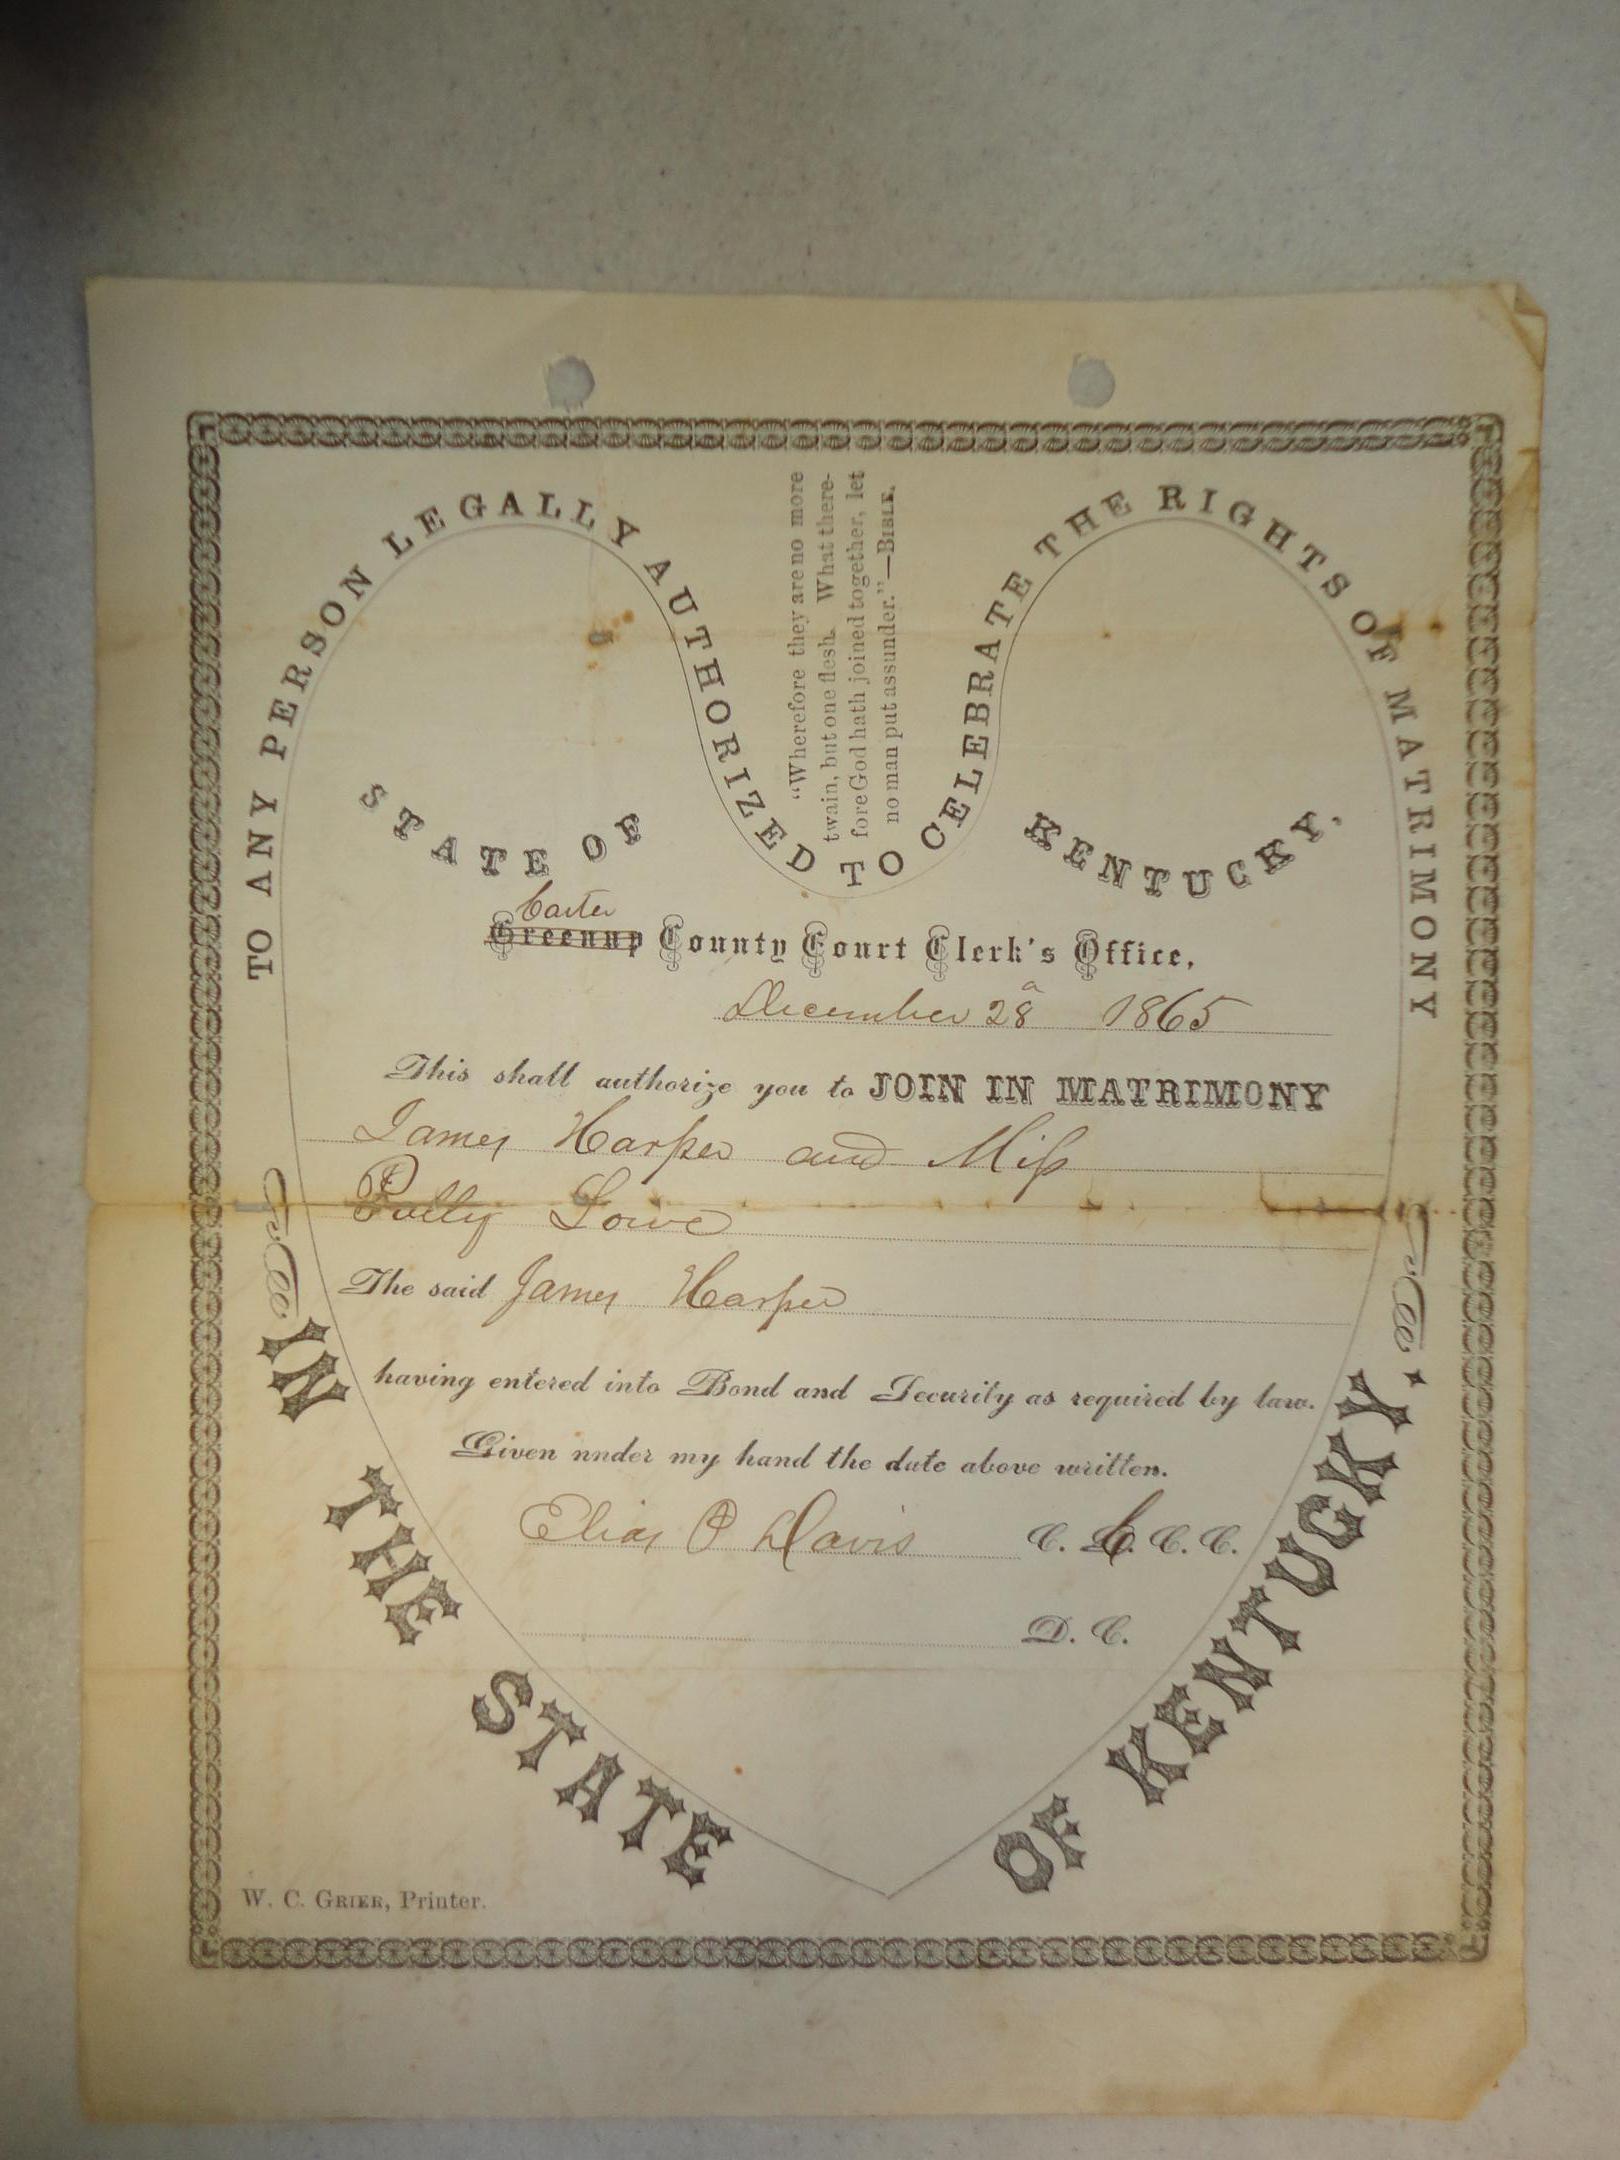 TO ANY PERSON LEGALLY AUTHORIZED TO CELEBRATE THE RIGHTS OF MATRIMONY
"Wherefore they are no more
twain, but one flesh. What there-
fore God hath joined together, let
no man put assunder."—BIBLE.
STATE OF KENTUCKY,
Carter
Greenup County Court Clerk's Office,
December 28 1865
This shall authorize you to JOIN IN MATRIMONY
James Harper and Miss
Polly Lowe
The said James Harper
having entered into Bond and Security as required by law.
Given nnder my hand the date above written.
Elias P Davis C. C. C. C.
D. C.
IN THE STATE OF KENTUCKY.
W. C. GRIER, Printer.